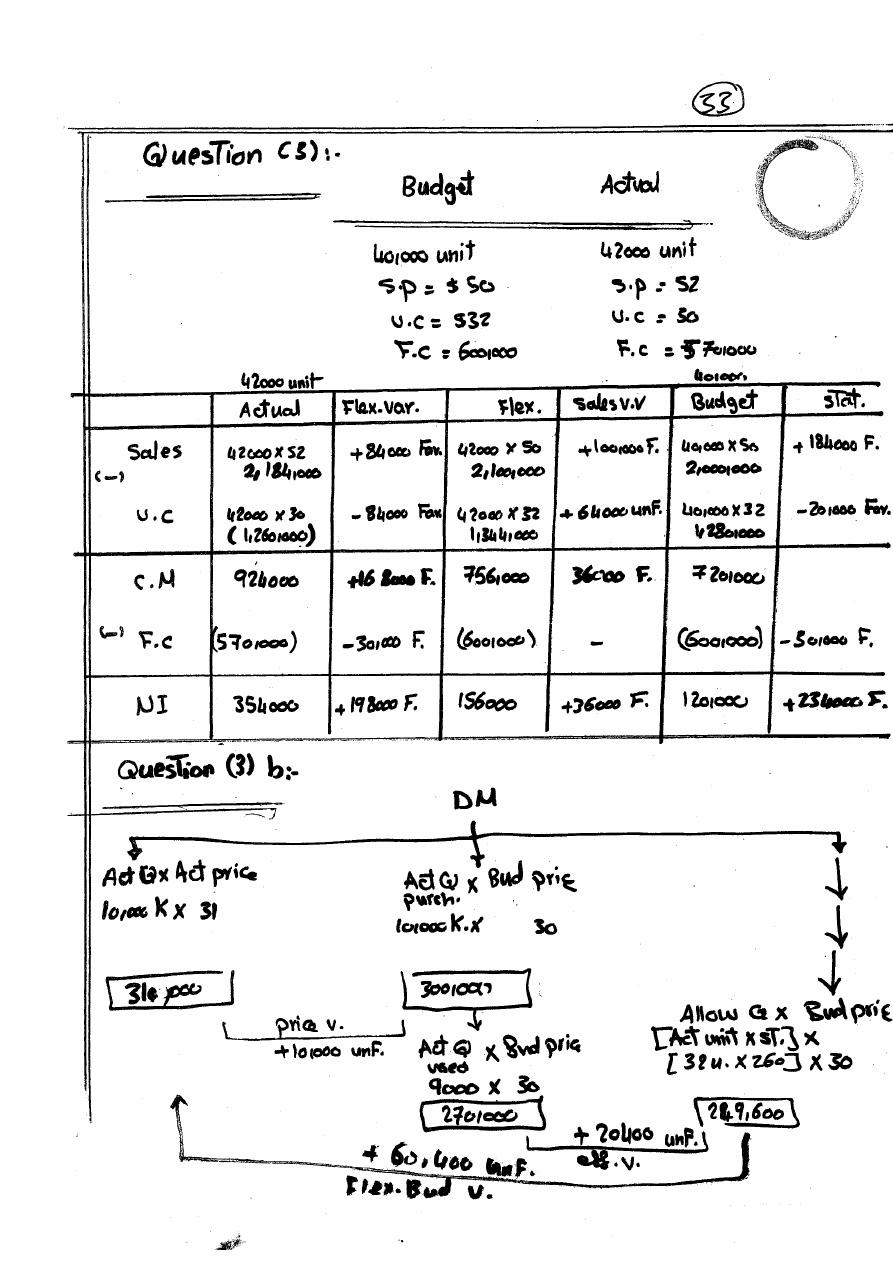 33
Question (3):-
Budget Actual
40,000 unit 42000 unit
S.p = $ 50 S.p = 52
U.C = $32 U.C = 30
F.C = 600,000 F.C = 570,000
42000 unit 40,000
Actual Flex.Var. Flex. Sales V.V Budget Stat.
Sales 42000 X 52 +84000 Fav. 42000 X 50 +100,000 F. 40,000 X 50 + 184000 F.
(-) 2,184,000 2,100,000 2,000,000
U.C 42000 X 30 - 84000 Fav. 42000 X 32 + 64000 unF. 40,000 X 32 -20,000 Fav.
(1,260,000) 1,344,000 1,280,000
C.M 924000 +168000 F. 756,000 36000 F. 720,000
(-) F.C (570,000) -30,000 F. (600,000) - (600,000) -30,000 F.
NI 354000 + 198000 F. 156000 +36000 F. 120,000 + 234000 F.
Question (3) b:-
DM
Act Q X Act price Act Q X Bud price
purch.
10,000 K X 31 10,000 K.X 30
310,000 300,000
price v.
+10,000 unF.
Allow Q X Bud price
Act Q X Bud price [Act unit X ST.] X
used [32 u. X 260] X 30
9000 X 30
270,000 249,600
+ 20400 unF.
eff. v.
+ 60,400 unF.
Flex. Bud v.